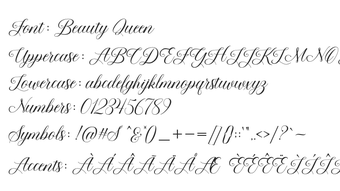 Font: Beauty Queen
Uppercase: ABCDEFGHIJKLMNO
Lowercase: abcdefghijklmnopqrstuvwxyz
Numbers: 0123456789
Symbols: !@#$ ^&*()_+-=//{}::'"..<>/?`~
Accents: ÀÁÂÃÄÅÆ ÈÉÊËÌÍÎ